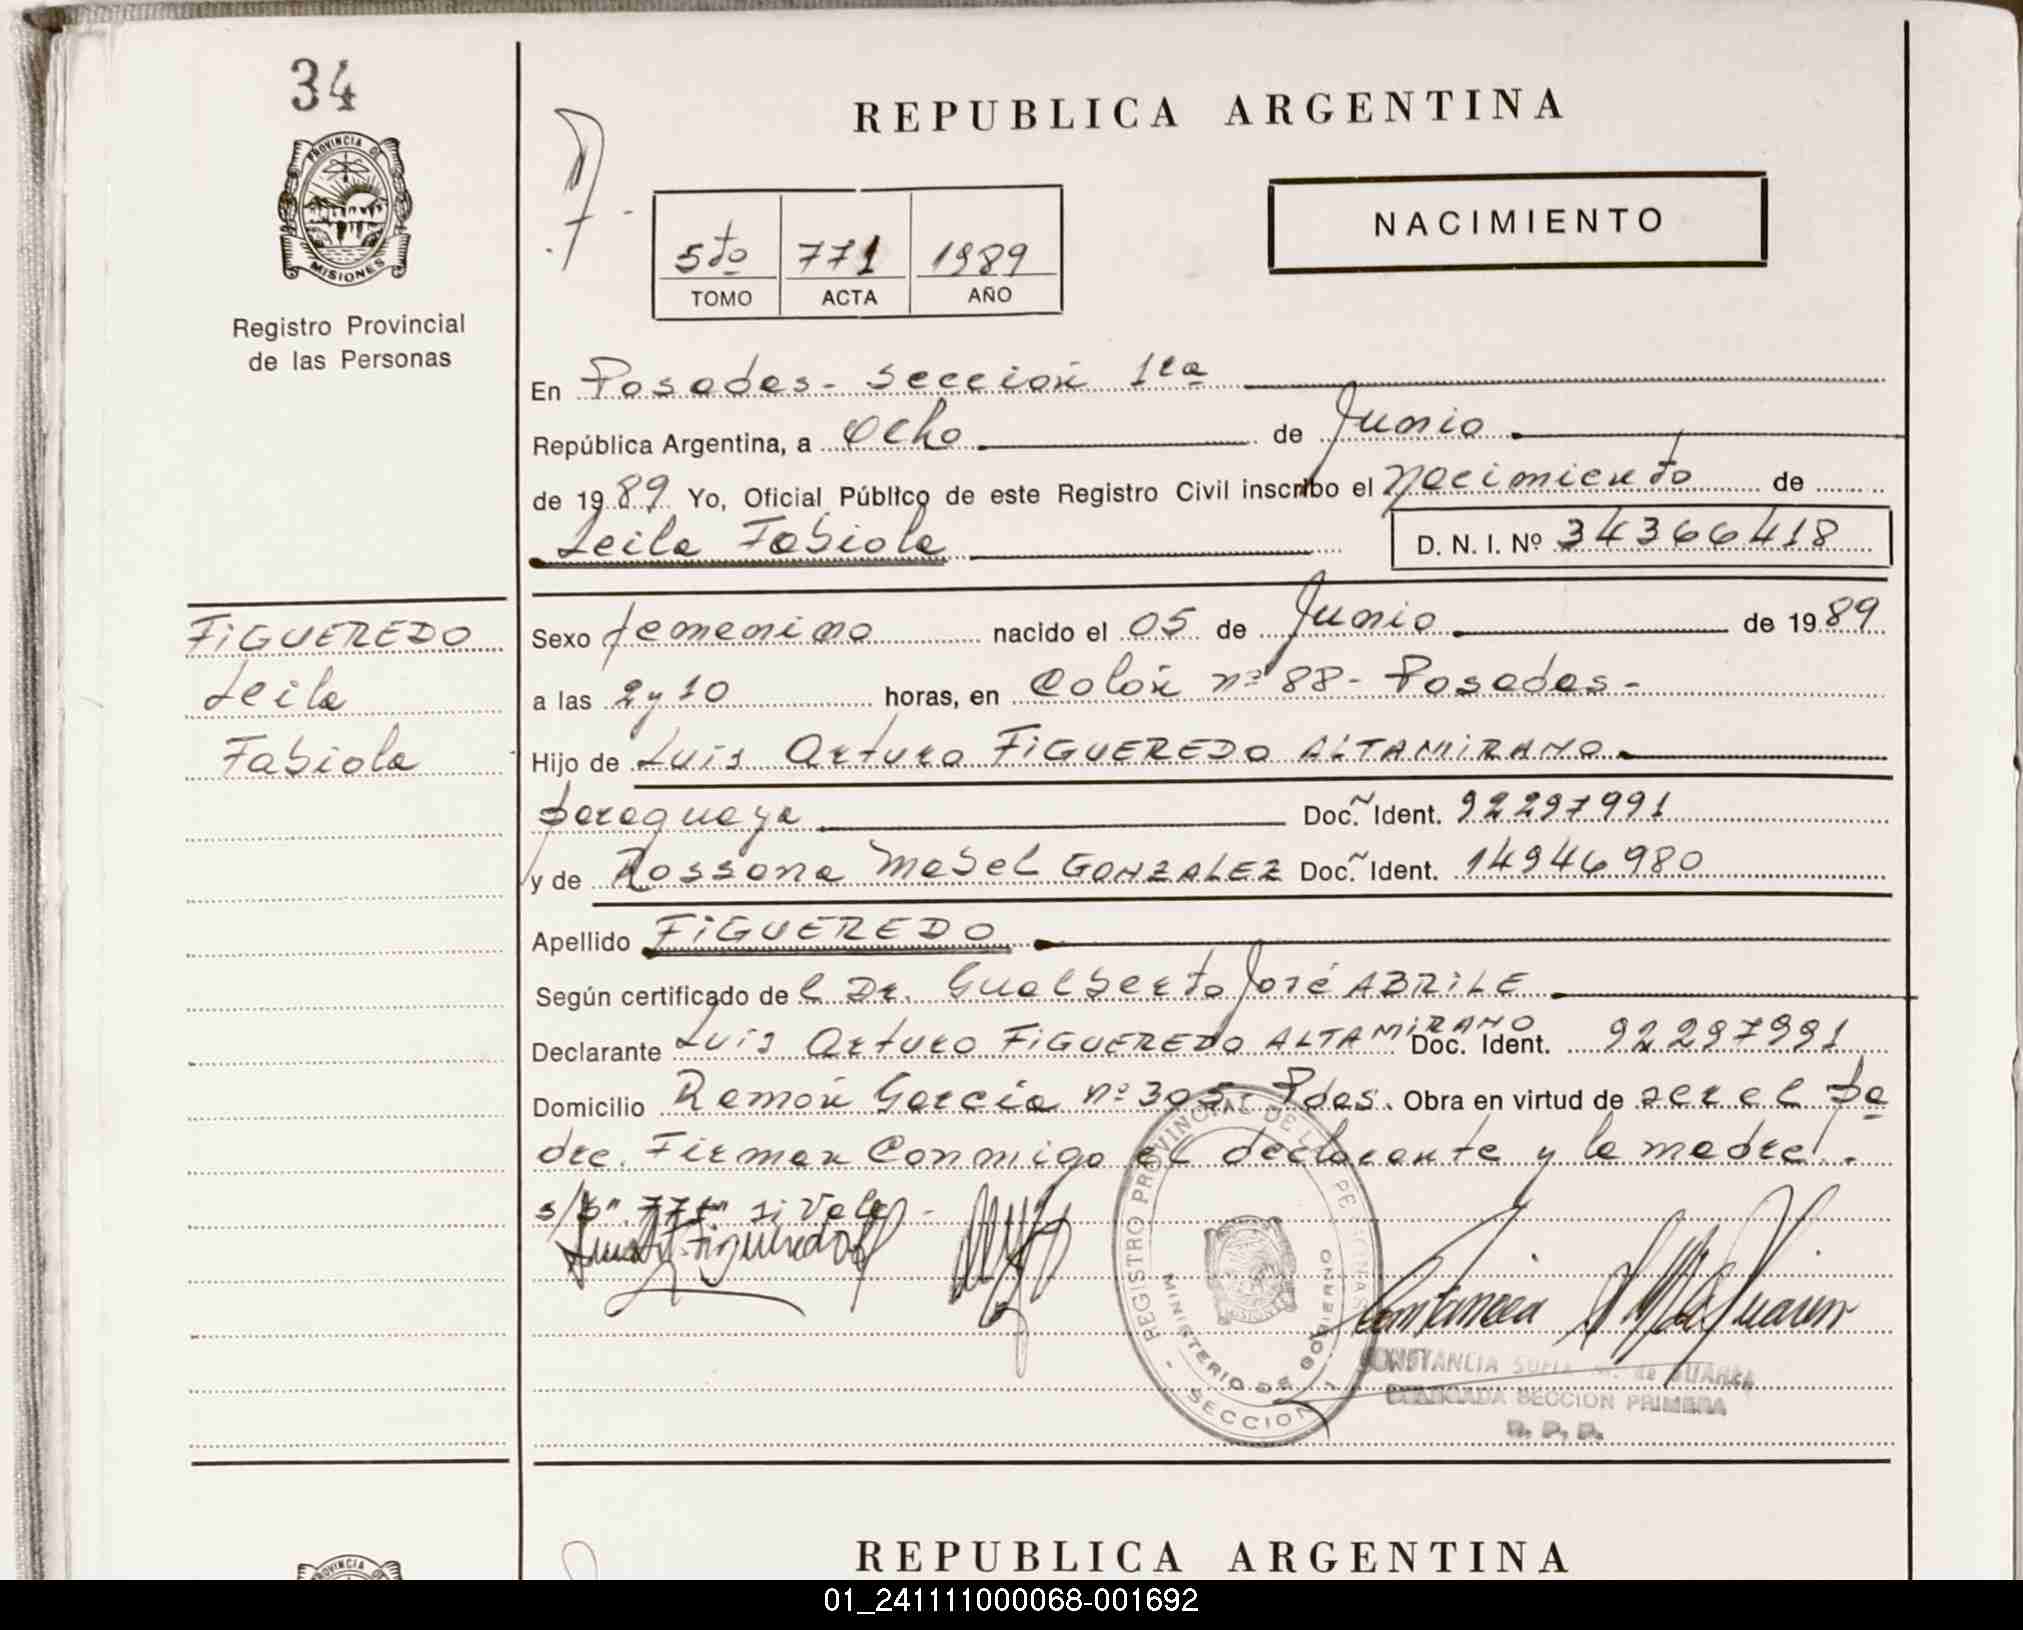 34
PROVINCIA DE
MISIONES
Registro Provincial
de las Personas
REPUBLICA ARGENTINA
NACIMIENTO
5to 771 1989
TOMO ACTA AÑO
En Posadas - Sección 1ra
República Argentina, a Ocho de Junio
de 1989 Yo, Oficial Público de este Registro Civil inscribo el Nacimiento de
Leila Fabiola D. N. I. Nº 34366418
FIGUEREDO
Leila
Fabiola
Sexo femenino nacido el 05 de Junio de 1989
a las 2 y 10 horas, en Colón nº 88 - Posadas -
Hijo de Luis Arturo FIGUEREDO ALTAMIRANO
paraguaya Doc. Ident. 92297991
y de Rossana Mabel GONZALEZ Doc. Ident. 14946980
Apellido FIGUEREDO
Según certificado del Dr. Gualberto José ABRILE
Declarante Luis Arturo FIGUEREDO ALTAMIRANO Doc. Ident. 92297991
Domicilio Ramón García nº 305 - Pdas. Obra en virtud de ser el pa
dre. Firman conmigo el declarante y la madre.
s/b "771" si vale -
REGISTRO PROVINCIAL DE LAS PERSONAS
MINISTERIO DE GOBIERNO
- SECCION 1
CONSTANCIA
SECCION PRIMERA
R. P. P.
REPUBLICA ARGENTINA
PROVINCIA
01_241111000068-001692